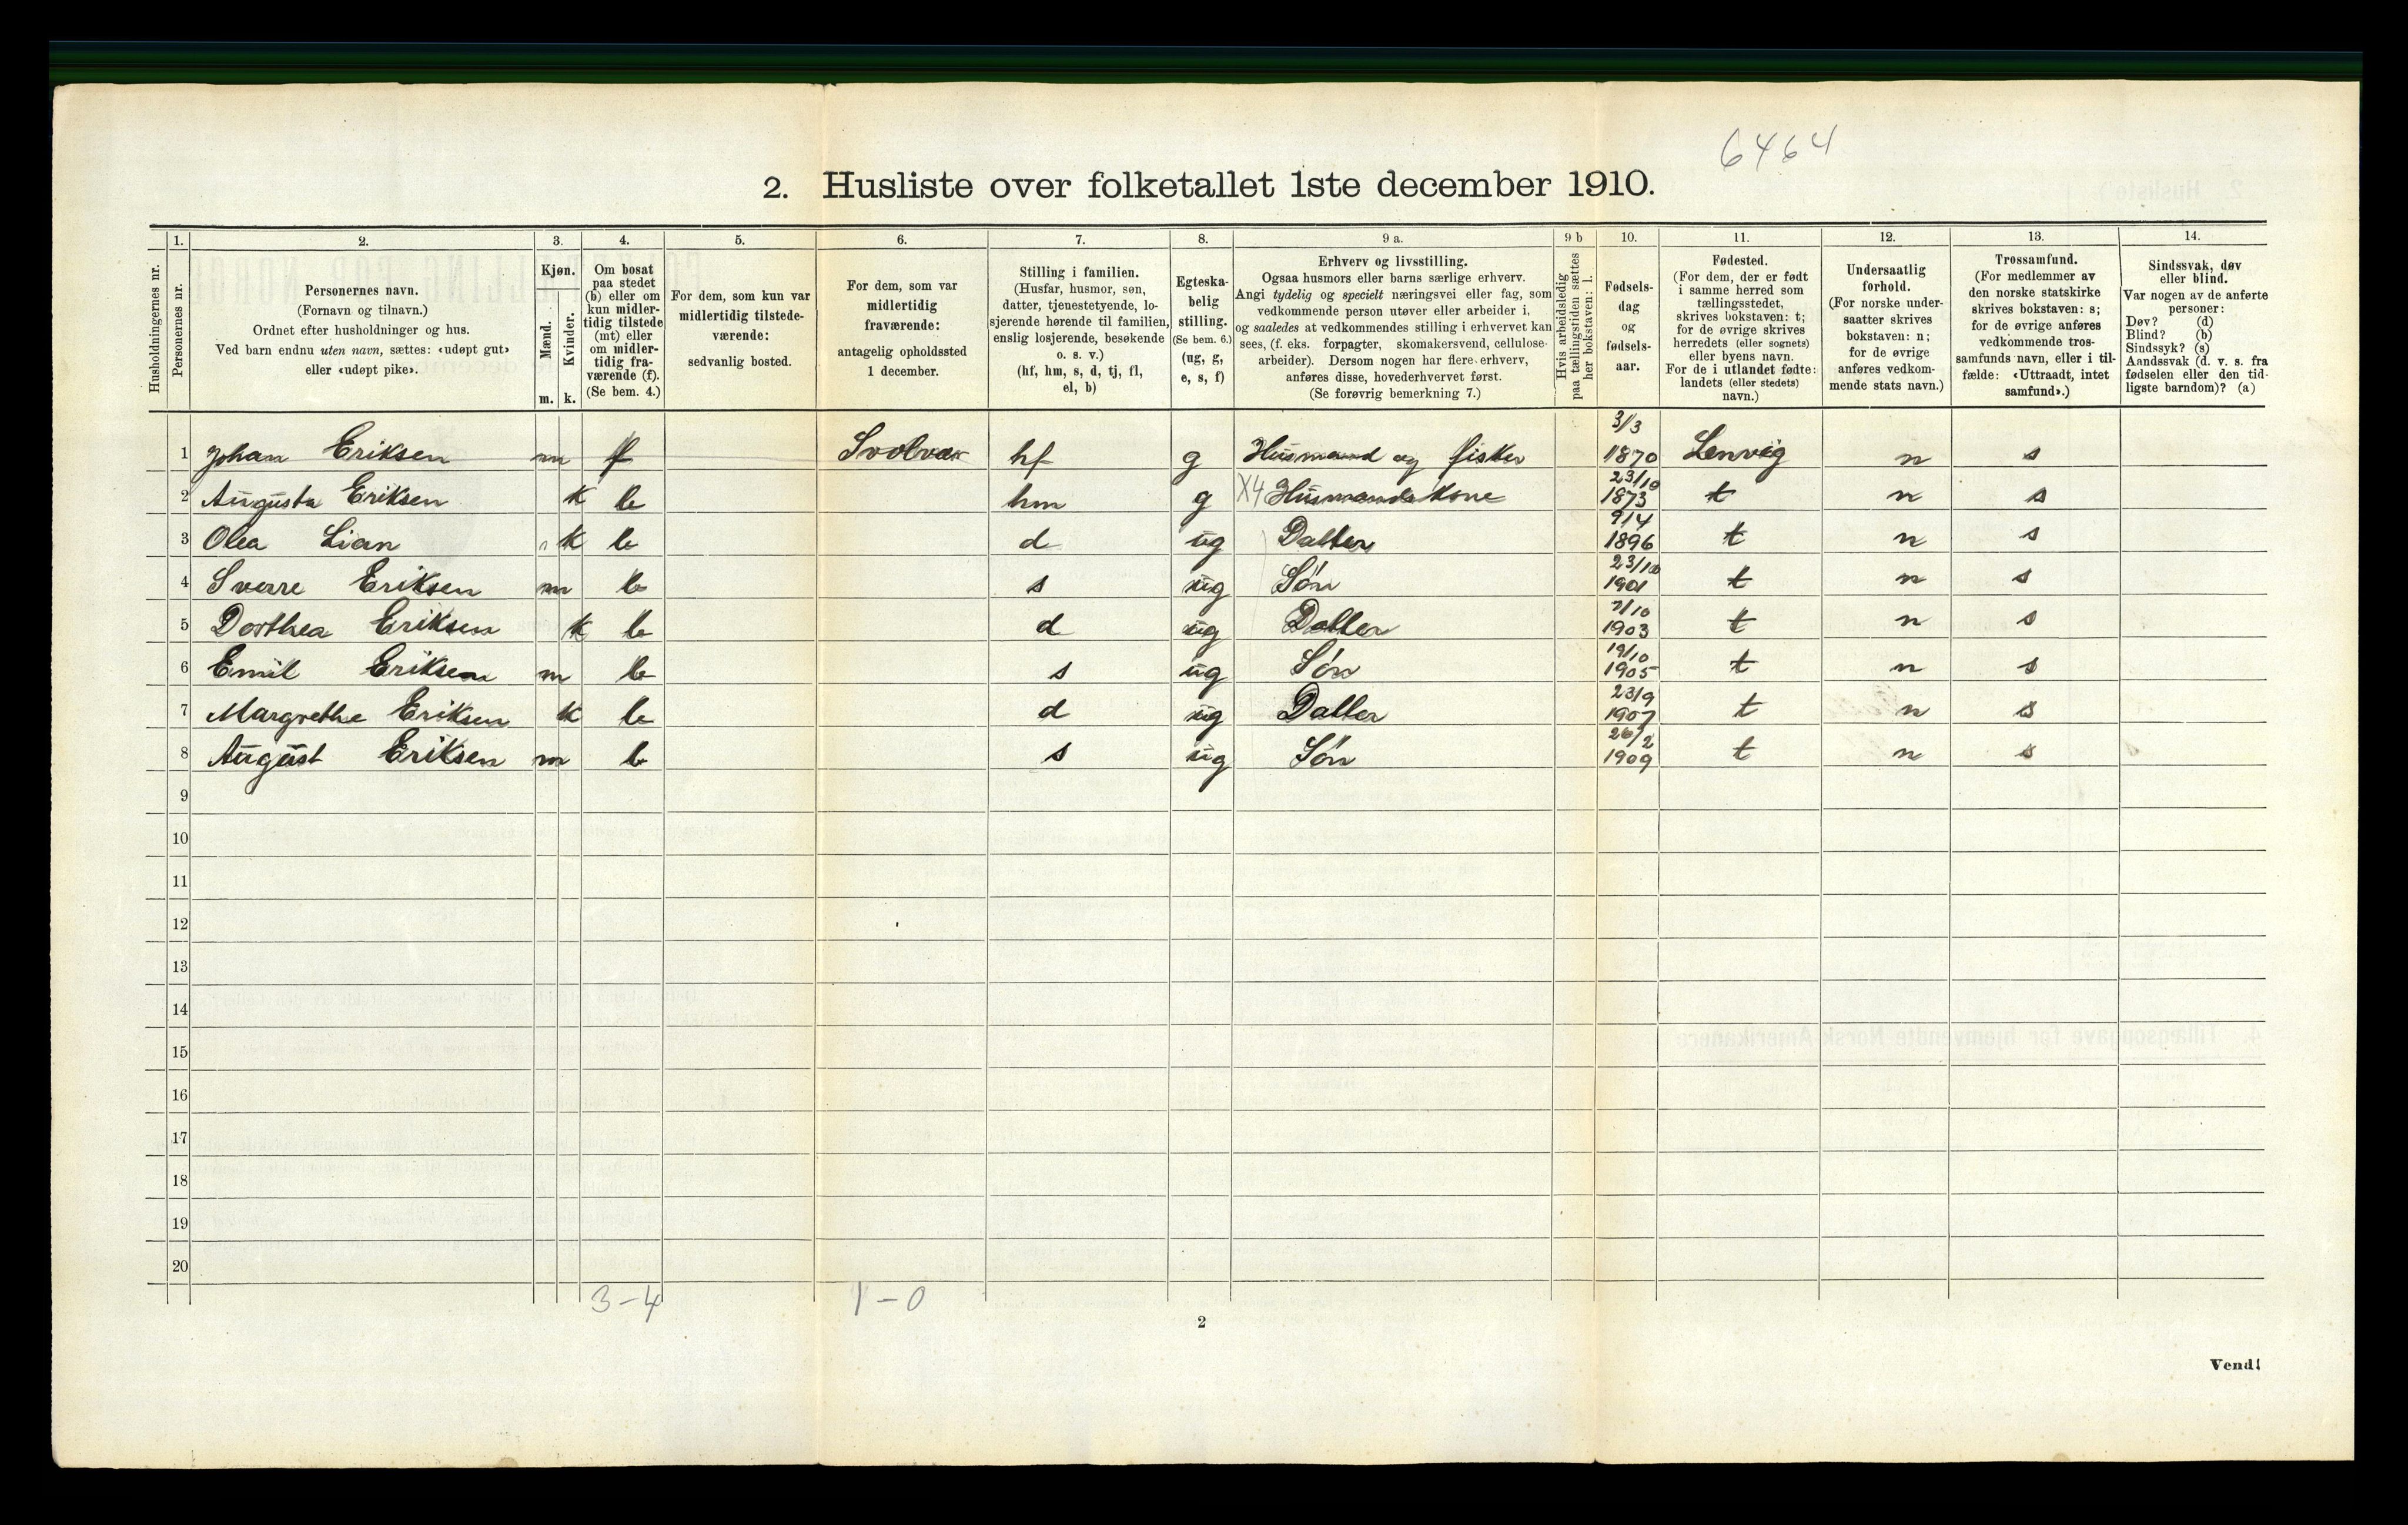 6464
2. Husliste over folketallet 1ste december 1910.
Husholdningernes nr.
1.
Personernes nr.
2.
Personernes navn.
(Fornavn og tilnavn.)
Ordnet efter husholdninger og hus.
Ved barn endnu uten navn, sættes: «udøpt gut»
eller «udøpt pike».
3.
Kjøn.
Mænd.
Kvinder.
m. k.
4.
Om bosat
paa stedet
(b) eller om
kun midler-
tidig tilstede
(mt) eller
om midler-
tidig fra-
værende (f).
(Se bem. 4.)
5.
For dem, som kun var
midlertidig tilstede-
værende:
sedvanlig bosted.
6.
For dem, som var
midlertidig
fraværende:
antagelig opholdssted
1 december.
7.
Stilling i familien.
(Husfar, husmor, søn,
datter, tjenestetyende, lo-
sjerende hørende til familien,
enslig losjerende, besøkende
o. s. v.)
(hf, hm, s, d, tj, fl,
el, b)
8.
Egteska-
belig
stilling.
(Se bem. 6.)
(ug, g,
e, s, f)
9 a.
Erhverv og livsstilling.
Ogsaa husmors eller barns særlige erhverv.
Angi tydelig og specielt næringsvei eller fag, som
vedkommende person utøver eller arbeider i,
og saaledes at vedkommendes stilling i erhvervet kan
sees, (f. eks. forpagter, skomakersvend, cellulose-
arbeider). Dersom nogen har flere erhverv,
anføres disse, hovederhvervet først.
(Se forøvrig bemerkning 7.)
9 b
Hvis arbeidsledig
paa tællingstiden sættes
her bokstaven: l.
10.
Fødsels-
dag
og
fødsels-
aar.
11.
Fødested.
(For dem, der er født
i samme herred som
tællingsstedet,
skrives bokstaven: t;
for de øvrige skrives
herredets (eller sognets)
eller byens navn.
For de i utlandet fødte:
landets (eller stedets)
navn.)
12.
Undersaatlig
forhold.
(For norske under-
saatter skrives
bokstaven: n;
for de øvrige
anføres vedkom-
mende stats navn.)
13.
Trossamfund.
(For medlemmer av
den norske statskirke
skrives bokstaven: s;
for de øvrige anføres
vedkommende tros-
samfunds navn, eller i til-
fælde: «Uttraadt, intet
samfund».)
14.
Sindssvak, døv
eller blind.
Var nogen av de anførte
personer:
Døv? (d)
Blind? (b)
Sindssyk? (s)
Aandssvak (d. v. s. fra
fødselen eller den tid-
ligste barndom)? (a)
1 Johan Eriksen m f Svolvær hf g Husmand og fisker 3/3 1870 Lenvig n s
2 Augusta Eriksen k b hm g X4 Husmandskone 23/10 1873 t n s
3 Olea Lian k b d ug Datter 9/4 1896 t n s
4 Sverre Eriksen m b s ug Søn 23/10 1901 t n s
5 Dorthea Eriksen k b d ug Datter 7/10 1903 t n s
6 Emil Eriksen m b s ug Søn 19/10 1905 t n s
7 Margrethe Eriksen k b d ug Datter 23/9 1907 t n s
8 August Eriksen m b s ug Søn 26/2 1909 t n s
9
10
11
12
13
14
15
16
17
18
19
20
3-4 1-0
2
Vend!